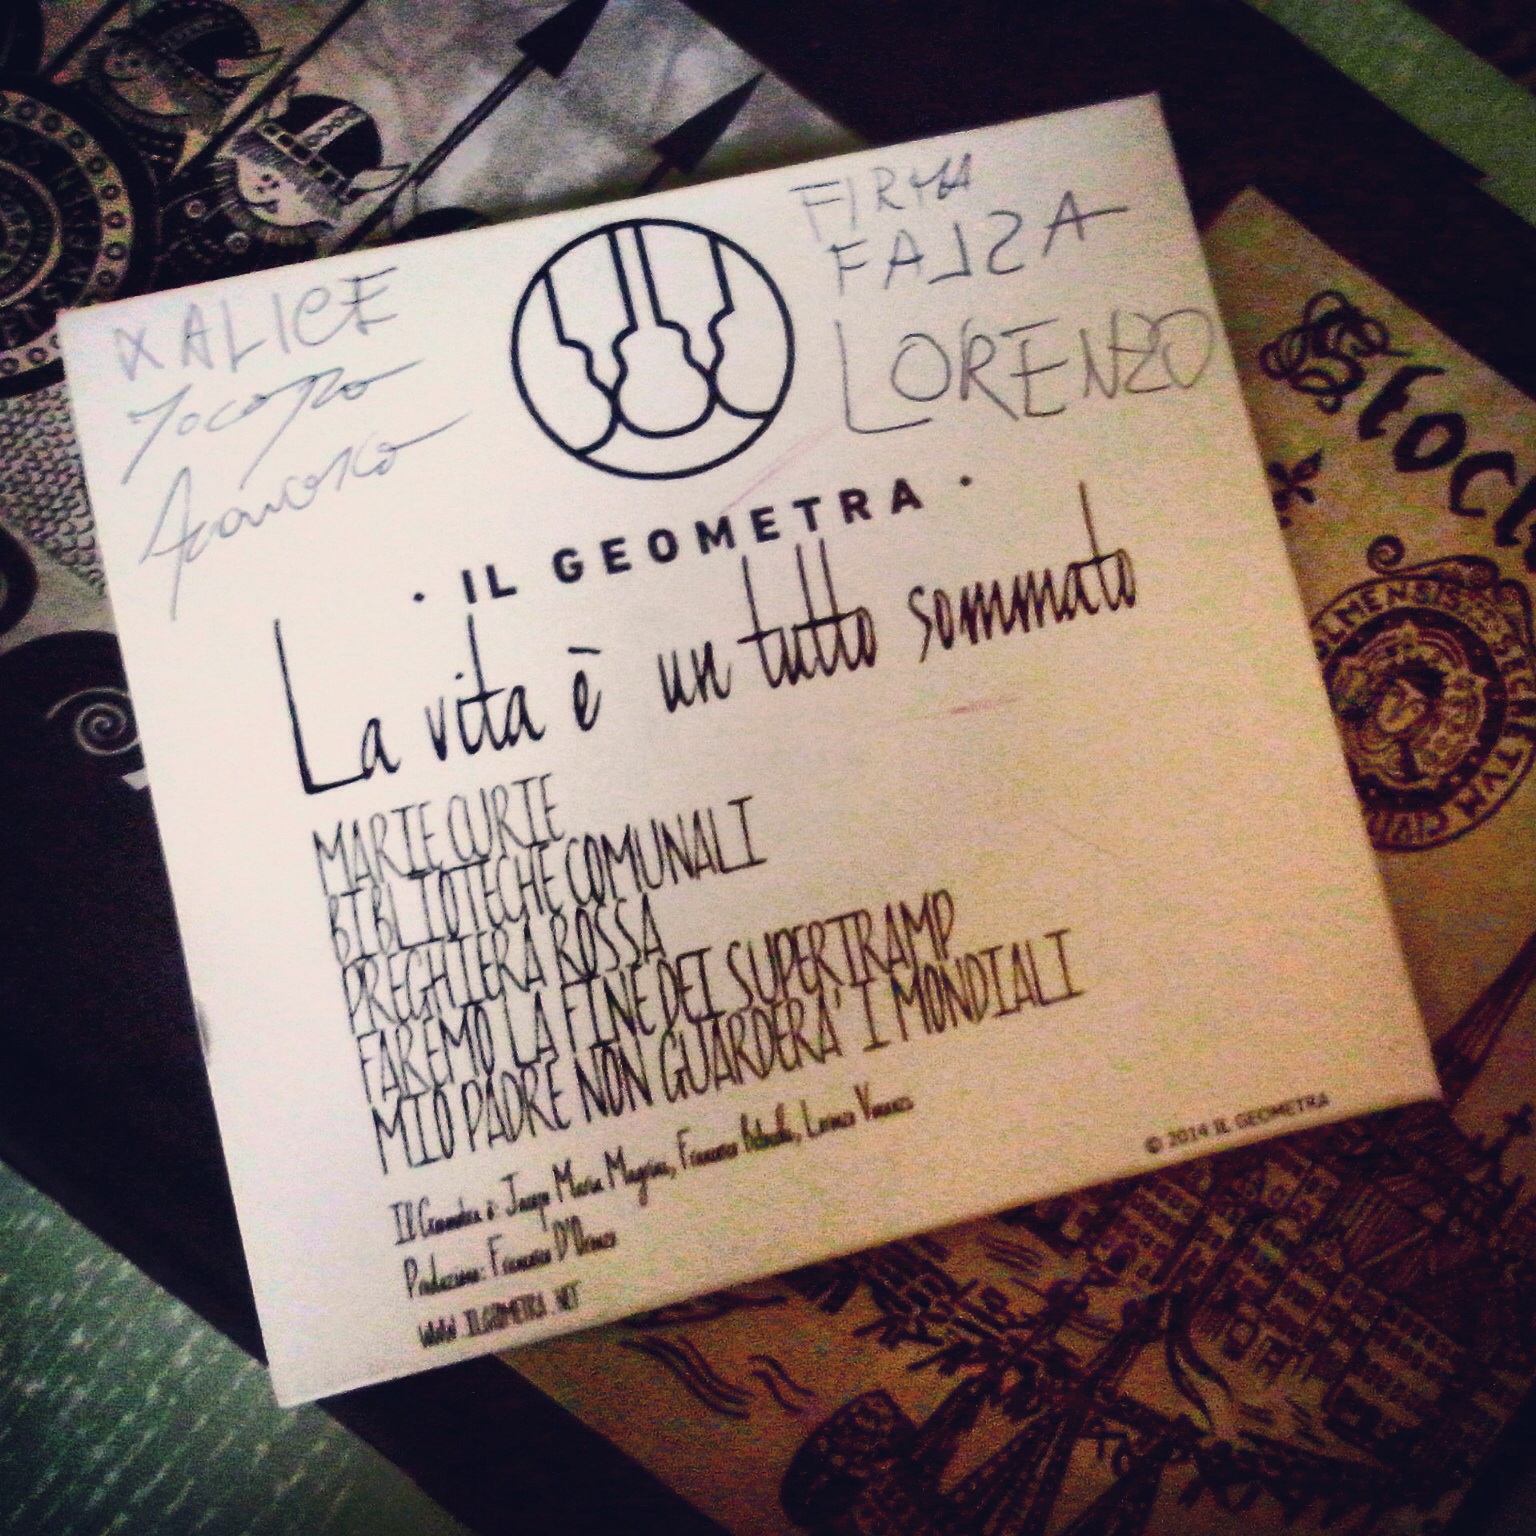 X ALICE
Jacopo
Francesco
FIRMA
FALSA
LORENZO
· IL GEOMETRA ·
La vita è un tutto sommato
MARIE CURIE
BIBLIOTECHE COMUNALI
PREGHIERA ROSSA
FAREMO LA FINE DEI SUPERTRAMP
MIO PADRE NON GUARDERA' I MONDIALI
Il Geometra è: Jacopo Maria Magrini, Francesco Lorenzo
Produzione: Francesco D'Oronzo
www.ILGEOMETRA.NET
© 2014 IL GEOMETRA
Stoc